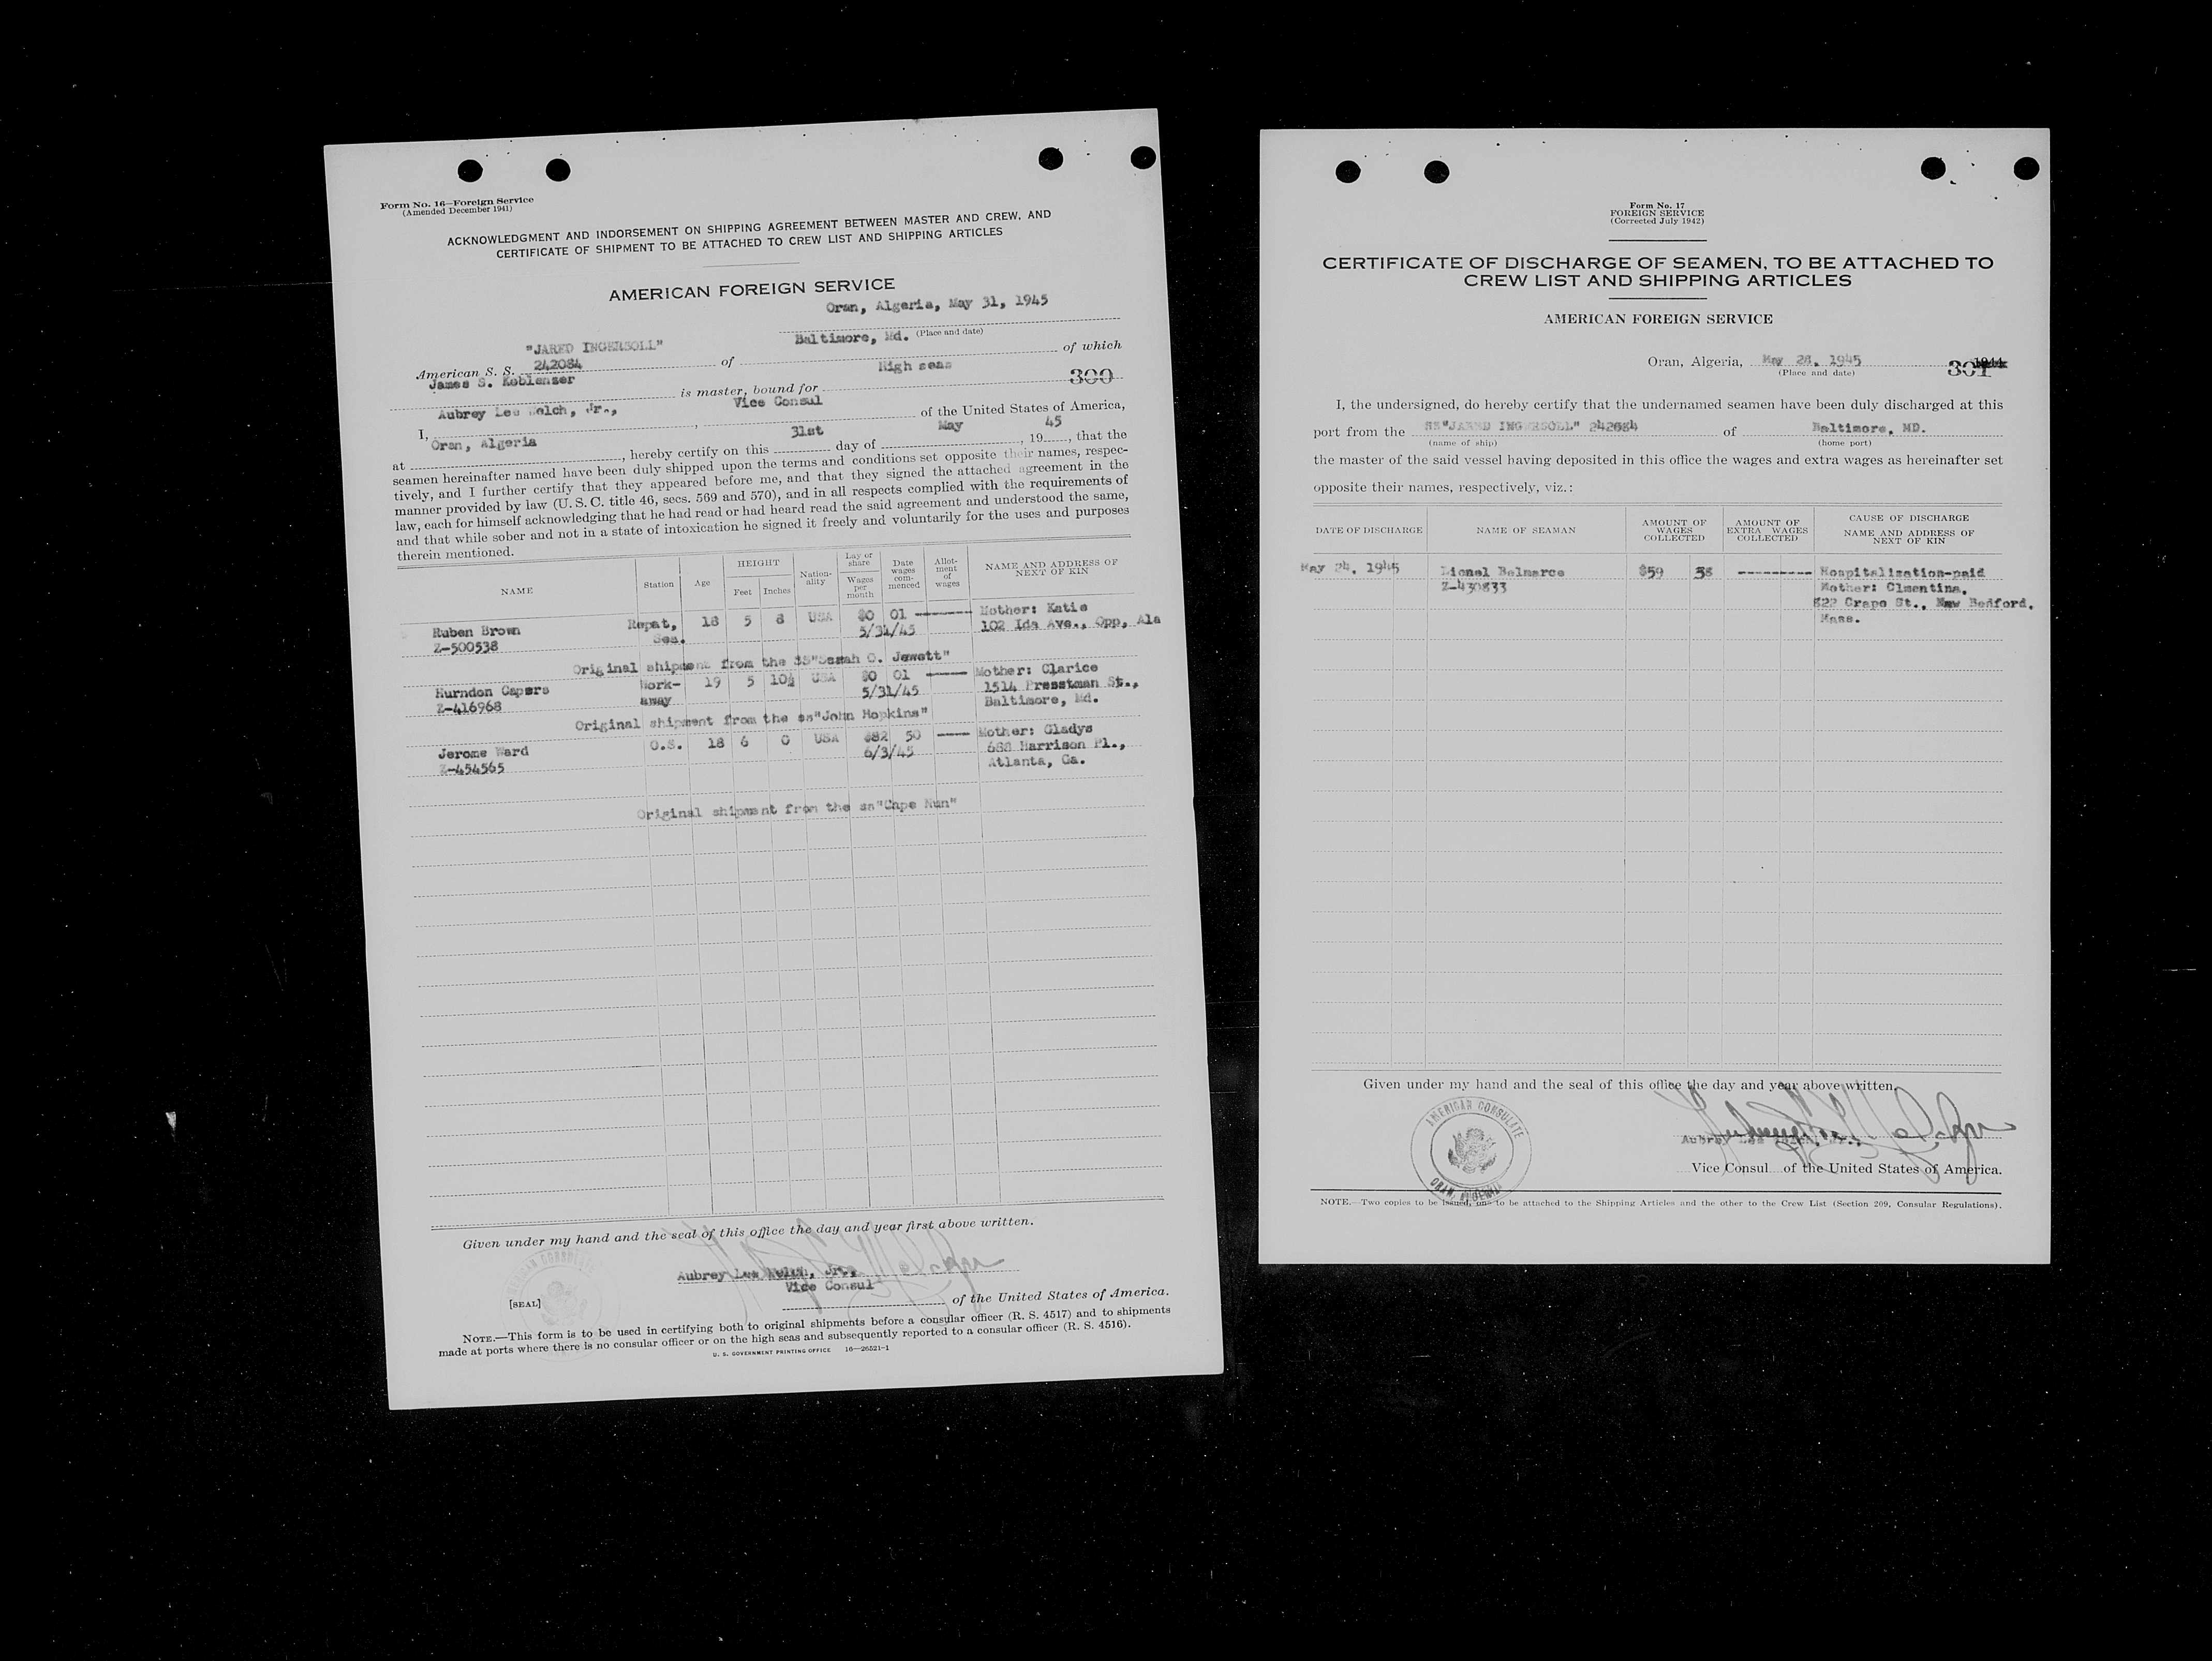 Form No. 16—Foreign Service
(Amended December 1941)
ACKNOWLEDGMENT AND INDORSEMENT ON SHIPPING AGREEMENT BETWEEN MASTER AND CREW, AND
CERTIFICATE OF SHIPMENT TO BE ATTACHED TO CREW LIST AND SHIPPING ARTICLES
AMERICAN FOREIGN SERVICE
Oran, Algeria, May 31, 1945
(Place and date)
"JARED INGERSOLL"
American S. S. 242084 of Baltimore, Md. of which
James S. Koblenzer is master, bound for High seas 300
I, Aubrey Lee Welch, Jr., Vice Consul of the United States of America,
at Oran, Algeria, hereby certify on this 31st day of May, 1945, that the
seamen hereinafter named have been duly shipped upon the terms and conditions set opposite their names, respec-
tively, and I further certify that they appeared before me, and that they signed the attached agreement in the
manner provided by law (U. S. C. title 46, secs. 569 and 570), and in all respects complied with the requirements of
law, each for himself acknowledging that he had read or had heard read the said agreement and understood the same,
and that while sober and not in a state of intoxication he signed it freely and voluntarily for the uses and purposes
therein mentioned.
NAME Station Age HEIGHT Feet Inches Nation-ality Lay or share Wages per month Date wages com-menced Allot-ment of wages NAME AND ADDRESS OF NEXT OF KIN
Ruben Brown Repat, 18 5 8 USA $0 01 ------- Mother: Katie
Z-500538 Sea. 5/31/45 102 Ida Ave., Opp, Ala
Original shipment from the SS"Sarah O. Jewett"
Hurndon Capers Work- 19 5 10½ USA $0 01 ----- Mother: Clarice
Z-416968 away 5/31/45 1514 Presstman St.,
Baltimore, Md.
Original shipment from the ss"John Hopkins"
Jerome Ward O.S. 18 6 0 USA $82 50 ---- Mother: Gladys
Z-454565 6/3/45 688 Harrison Pl.,
Atlanta, Ga.
Original shipment from the ss"Cape Nun"
Given under my hand and the seal of this office the day and year first above written.
Aubrey Lee Welch, Jr.,
Vice Consul
[SEAL] of the United States of America.
NOTE.—This form is to be used in certifying both to original shipments before a consular officer (R. S. 4517) and to shipments
made at ports where there is no consular officer or on the high seas and subsequently reported to a consular officer (R. S. 4516).
U. S. GOVERNMENT PRINTING OFFICE 16—26521-1
Form No. 17
FOREIGN SERVICE
(Corrected July 1942)
CERTIFICATE OF DISCHARGE OF SEAMEN, TO BE ATTACHED TO
CREW LIST AND SHIPPING ARTICLES
AMERICAN FOREIGN SERVICE
Oran, Algeria, May 28, 1945 301 1944
(Place and date)
I, the undersigned, do hereby certify that the undernamed seamen have been duly discharged at this
port from the SS"JARED INGERSOLL" 242084 of Baltimore, MD.
(name of ship) (home port)
the master of the said vessel having deposited in this office the wages and extra wages as hereinafter set
opposite their names, respectively, viz.:
DATE OF DISCHARGE NAME OF SEAMAN AMOUNT OF WAGES COLLECTED AMOUNT OF EXTRA WAGES COLLECTED CAUSE OF DISCHARGE NAME AND ADDRESS OF NEXT OF KIN
May 24, 1945 Lionel Belmarce $59 38 --------- Hospitalization-paid
Z-430833 Mother: Clmentina,
822 Crapo St., New Bedford,
Mass.
Given under my hand and the seal of this office the day and year above written.
AMERICAN CONSULATE
ORAN, ALGERIA
Aubrey Lee Welch, Jr.,
Vice Consul of the United States of America.
NOTE.—Two copies to be issued, one to be attached to the Shipping Articles and the other to the Crew List (Section 209, Consular Regulations).